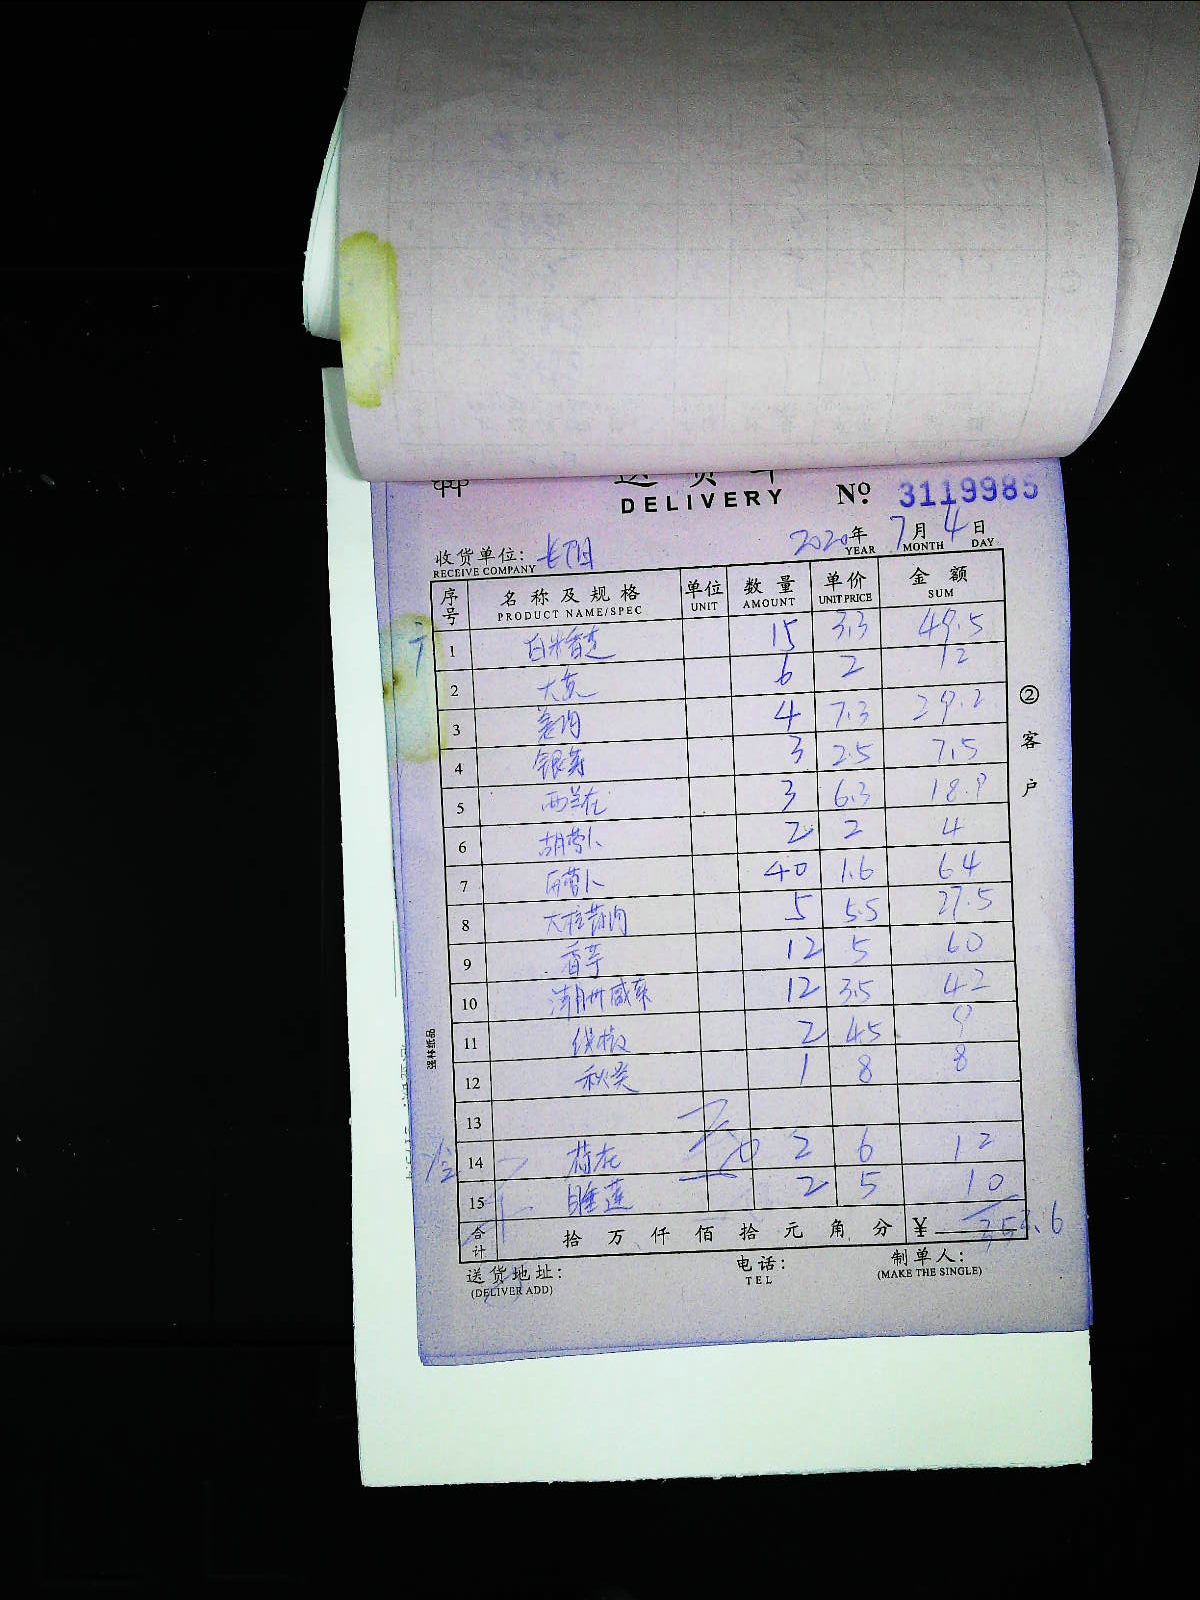 DELIVERY No. 3119985
收货单位: 长阳 2020年 7月 4日
RECEIVE COMPANY YEAR MONTH DAY
序号 名称及规格 单位 数量 单价 金额
PRODUCT NAME/SPEC UNIT AMOUNT UNIT PRICE SUM
1 15 3.3 49.5
2 6 2 12
3 姜肉 4 7.3 29.2
4 银芽 3 2.5 7.5
5 西兰花 3 6.3 18.9
6 胡萝卜 2 2 4
7 白萝卜 40 1.6 64
8 5 5.5 27.5
9 香芋 12 5 60
10 潮州咸菜 12 3.5 42
11 2 4.5 9
12 秋葵 1 8 8
13
14 荷花 2 6 12
15 睡莲 2 5 10
合计 拾万仟佰拾元角分 ¥ 353.6
送货地址: 电话: 制单人:
(DELIVER ADD) TEL (MAKE THE SINGLE)
② 客户
强林纸品